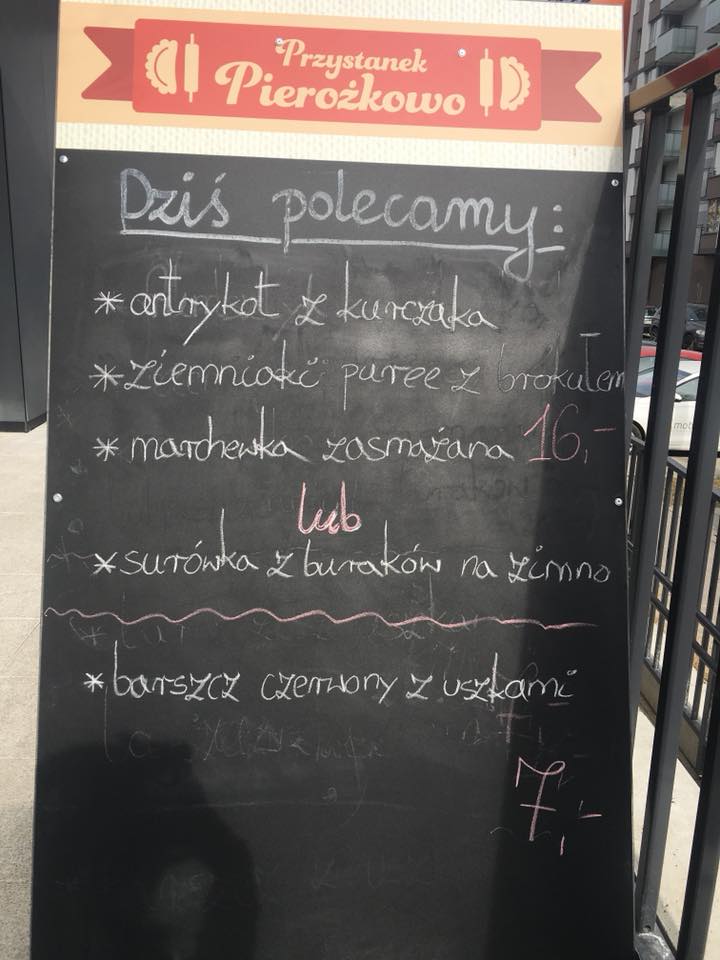 Przystanek
Pierożkowo
Dziś polecamy:
* antrykot z kurczaka
* ziemniaki puree z brokułem
* marchewka zasmażana 16,-
lub
* surówka z buraków na zimno
* barszcz czerwony z uszkami
7,-